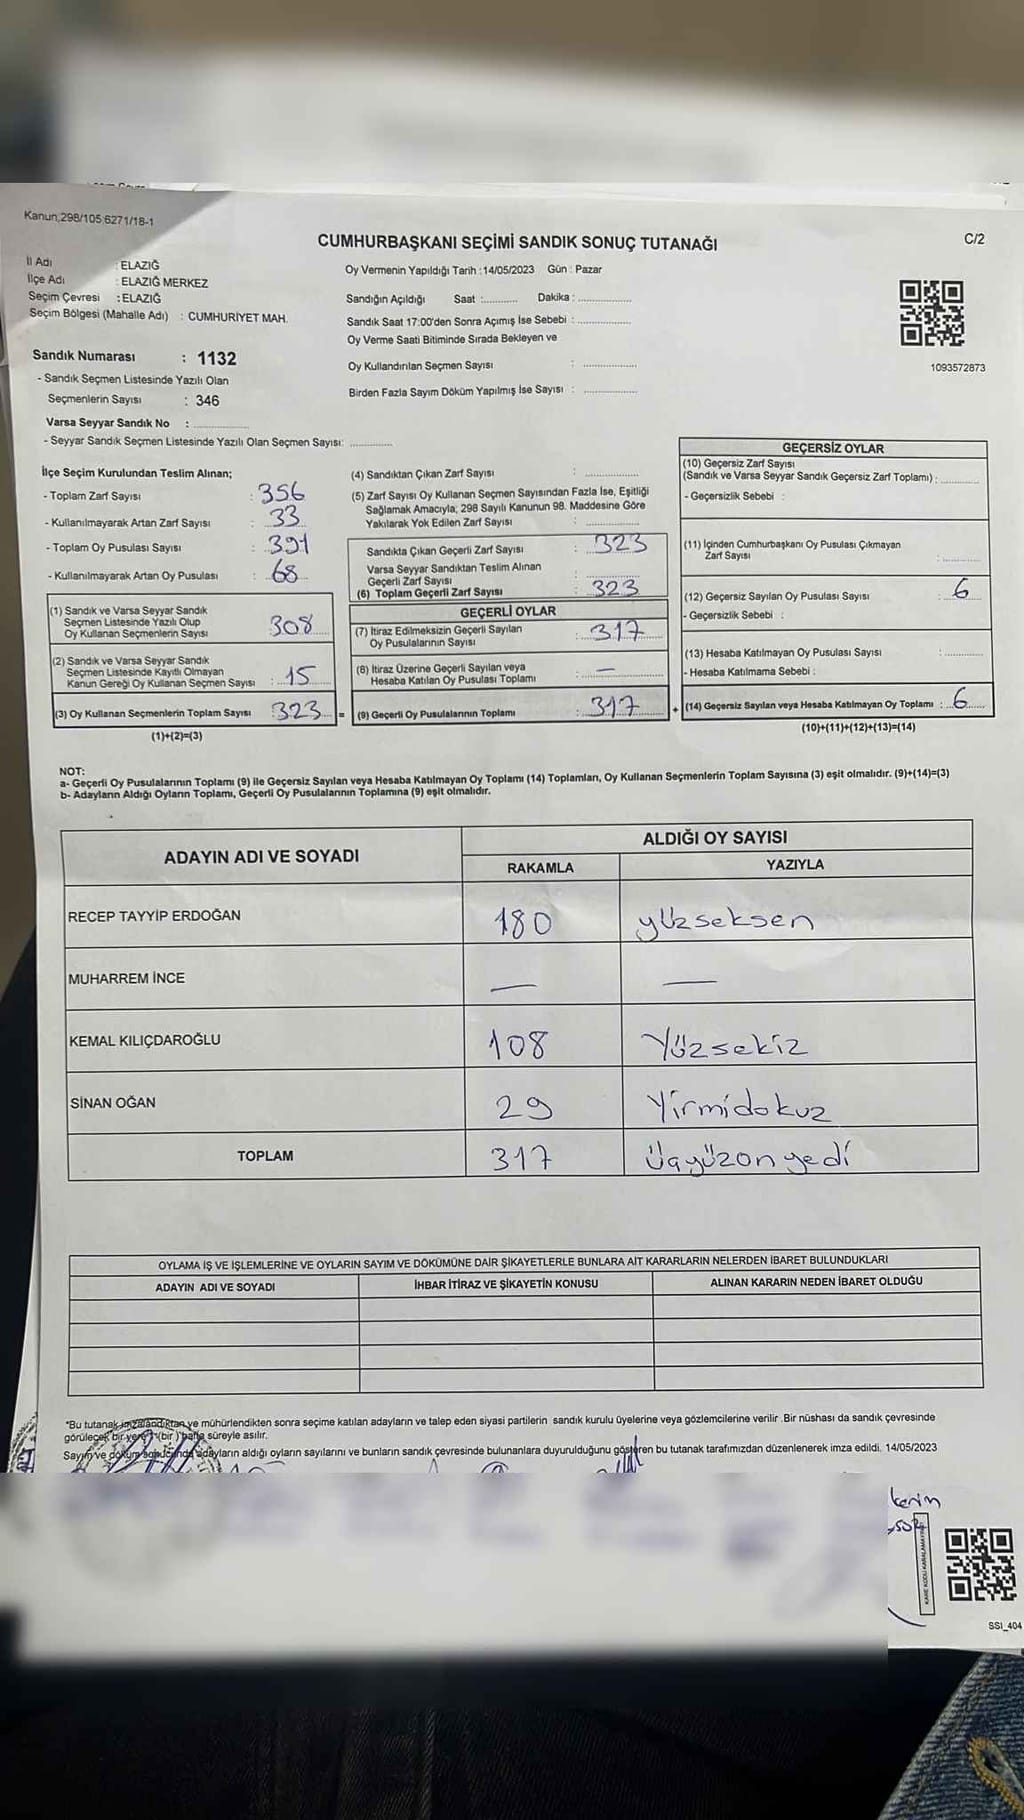 Kanun,298/105,6271/18-1
CUMHURBAŞKANI SEÇİMİ SANDIK SONUÇ TUTANAĞI
C/2
İl Adı : ELAZIĞ
İlçe Adı : ELAZIĞ MERKEZ
Seçim Çevresi : ELAZIĞ
Seçim Bölgesi (Mahalle Adı) : CUMHURİYET MAH.
Oy Vermenin Yapıldığı Tarih :14/05/2023 Gün : Pazar
Sandığın Açıldığı Saat :........... Dakika :................
Sandık Saat 17:00'den Sonra Açımış İse Sebebi :................
Oy Verme Saati Bitiminde Sırada Bekleyen ve
Oy Kullandırılan Seçmen Sayısı : ................
Birden Fazla Sayım Döküm Yapılmış İse Sayısı : ................
1093572873
Sandık Numarası : 1132
- Sandık Seçmen Listesinde Yazılı Olan
Seçmenlerin Sayısı : 346
Varsa Seyyar Sandık No : ................
- Seyyar Sandık Seçmen Listesinde Yazılı Olan Seçmen Sayısı: ............
İlçe Seçim Kurulundan Teslim Alınan;
- Toplam Zarf Sayısı : 356
- Kullanılmayarak Artan Zarf Sayısı : 33
- Toplam Oy Pusulası Sayısı : 391
- Kullanılmayarak Artan Oy Pusulası : 68
(1) Sandık ve Varsa Seyyar Sandık
Seçmen Listesinde Yazılı Olup
Oy Kullanan Seçmenlerin Sayısı : 308
(2) Sandık ve Varsa Seyyar Sandık
Seçmen Listesinde Kayıtlı Olmayan
Kanun Gereği Oy Kullanan Seçmen Sayısı : 15
(3) Oy Kullanan Seçmenlerin Toplam Sayısı : 323 =
(1)+(2)=(3)
(4) Sandıktan Çıkan Zarf Sayısı : ................
(5) Zarf Sayısı Oy Kullanan Seçmen Sayısından Fazla İse, Eşitliği
Sağlamak Amacıyla; 298 Sayılı Kanunun 98. Maddesine Göre
Yakılarak Yok Edilen Zarf Sayısı : ................
Sandıkta Çıkan Geçerli Zarf Sayısı : 323
Varsa Seyyar Sandıktan Teslim Alınan
Geçerli Zarf Sayısı : ................
(6) Toplam Geçerli Zarf Sayısı : 323
GEÇERLİ OYLAR
(7) İtiraz Edilmeksizin Geçerli Sayılan
Oy Pusulalarının Sayısı : 317
(8) İtiraz Üzerine Geçerli Sayılan veya
Hesaba Katılan Oy Pusulası Toplamı : —
(9) Geçerli Oy Pusulalarının Toplamı : 317 +
GEÇERSİZ OYLAR
(10) Geçersiz Zarf Sayısı
(Sandık ve Varsa Seyyar Sandık Geçersiz Zarf Toplamı) : ............
- Geçersizlik Sebebi :
(11) İçinden Cumhurbaşkanı Oy Pusulası Çıkmayan
Zarf Sayısı : ............
(12) Geçersiz Sayılan Oy Pusulası Sayısı : 6
- Geçersizlik Sebebi :
(13) Hesaba Katılmayan Oy Pusulası Sayısı : ............
- Hesaba Katılmama Sebebi :
(14) Geçersiz Sayılan veya Hesaba Katılmayan Oy Toplamı : 6
(10)+(11)+(12)+(13)=(14)
NOT:
a- Geçerli Oy Pusulalarının Toplamı (9) ile Geçersiz Sayılan veya Hesaba Katılmayan Oy Toplamı (14) Toplamları, Oy Kullanan Seçmenlerin Toplam Sayısına (3) eşit olmalıdır. (9)+(14)=(3)
b- Adayların Aldığı Oyların Toplamı, Geçerli Oy Pusulalarının Toplamına (9) eşit olmalıdır.
ADAYIN ADI VE SOYADI
ALDIĞI OY SAYISI
RAKAMLA YAZIYLA
RECEP TAYYİP ERDOĞAN 180 yüzseksen
MUHARREM İNCE — —
KEMAL KILIÇDAROĞLU 108 Yüzsekiz
SİNAN OĞAN 29 Yirmidokuz
TOPLAM 317 Üçyüzonyedi
OYLAMA İŞ VE İŞLEMLERİNE VE OYLARIN SAYIM VE DÖKÜMÜNE DAİR ŞİKAYETLERLE BUNLARA AİT KARARLARIN NELERDEN İBARET BULUNDUKLARI
ADAYIN ADI VE SOYADI İHBAR İTİRAZ VE ŞİKAYETİN KONUSU ALINAN KARARIN NEDEN İBARET OLDUĞU
*Bu tutanak imzalandıktan ve mühürlendikten sonra seçime katılan adayların ve talep eden siyasi partilerin sandık kurulu üyelerine veya gözlemcilerine verilir .Bir nüshası da sandık çevresinde
görülecek bir yere (bir ) hafta süreyle asılır.
Sayım ve döküm sonucunda adayların aldığı oyların sayılarını ve bunların sandık çevresinde bulunanlara duyurulduğunu gösteren bu tutanak tarafımızdan düzenlenerek imza edildi. 14/05/2023
kerim
SSI_404